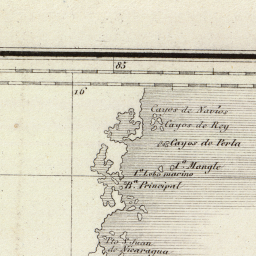 85
16
Cayos de Navios
Cayos de Rey
Cayos de Perla
Ia. Mangle
Ia. Lobo marino
Ba. Principal
Pto. S. Juan
de Nicaragua